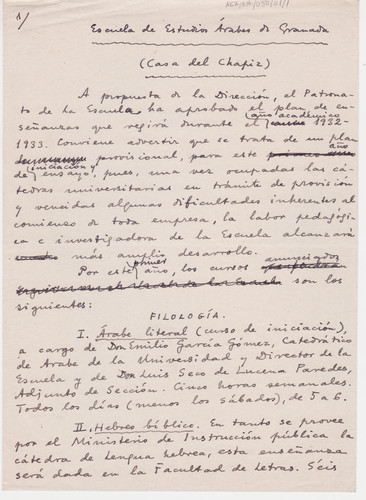 1/
Escuela de Estudios Árabes de Granada
(Casa del Chapiz)
A propuesta de la Dirección, el Patrona-
to de la Escuela ha aprobado el plan de en-
señanzas que regirá durante el (año académico 1932-
1933. Conviene advertir que se trata de un plan
provisional, para este año
de (iniciación y ensayo, pues, una vez ocupadas las cá-
tedras universitarias en trámite de provisión
y vencidas algunas dificultades inherentes al
comienzo de toda empresa, la labor pedagógi-
ca e investigadora de la Escuela alcanzará
más amplio desarrollo.
Por este primer año, los cursos anunciados
son los
siguientes:
FILOLOGÍA.
I. Árabe literal (curso de iniciación),
a cargo de Don Emilio García Gómez, Catedrático
de Árabe de la Universidad y Director de la
Escuela y de Don Luis Seco de Lucena Paredes,
Adjunto de Sección. Cinco horas semanales.
Todos los días (menos los sábados), de 5 a 6.
II. Hebreo bíblico. En tanto se provee
por el Ministerio de Instrucción pública la
cátedra de Lengua hebrea, esta enseñanza
será dada en la Facultad de Letras. Seis